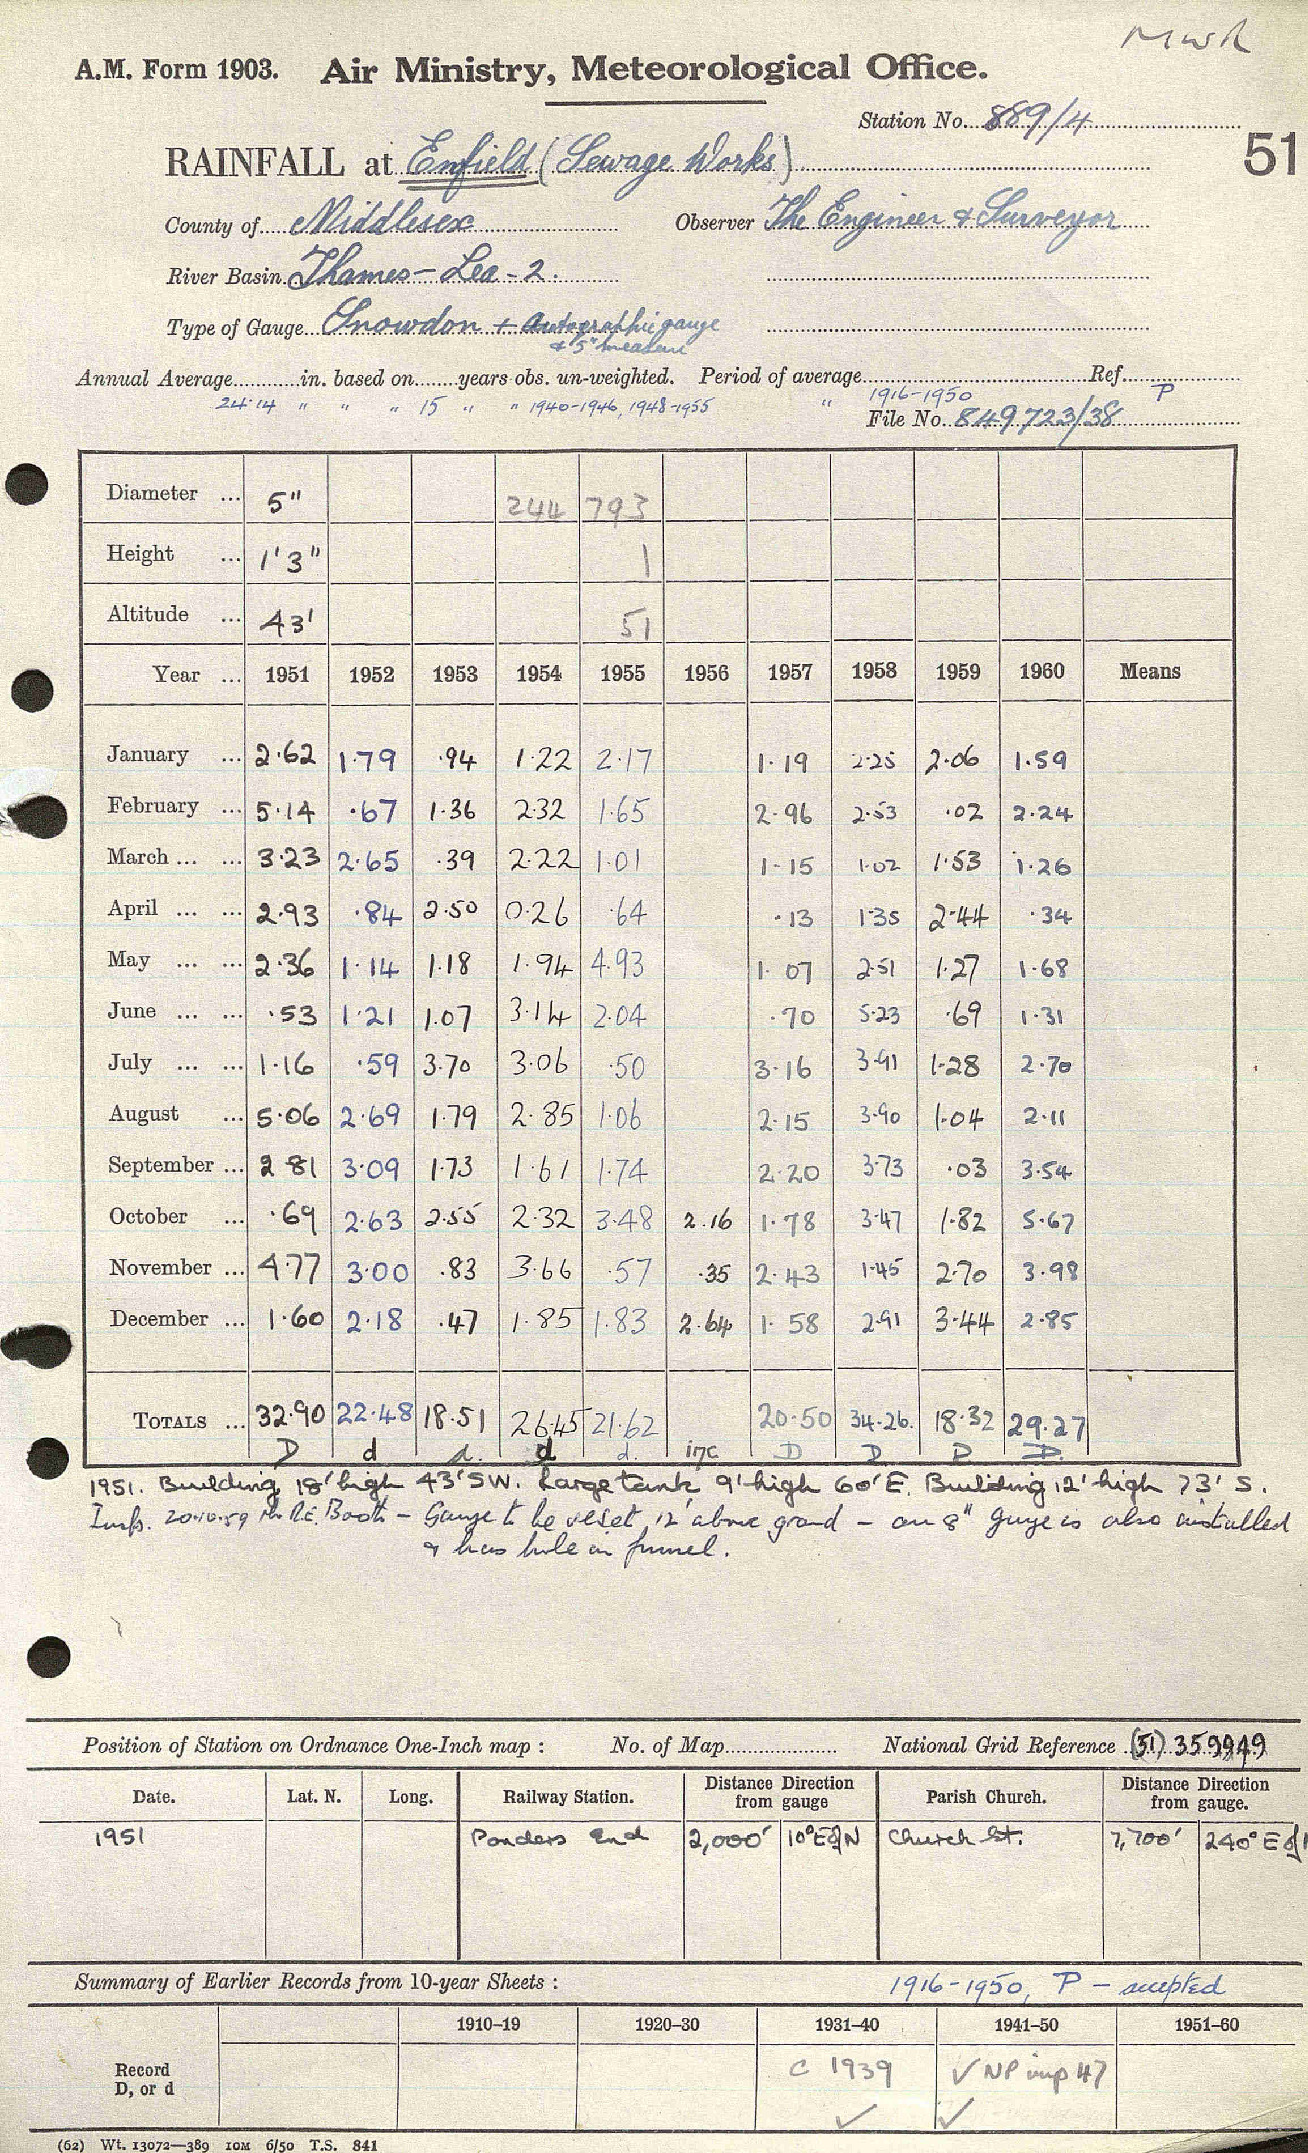 MWR
A.M. Form 1903. Air Ministry, Meteorological Office.
Station No. 889/4
51
RAINFALL at Enfield (Sewage Works)
County of Middlesex Observer The Engineer & Surveyor
River Basin Thames - Lea - 2.
Type of Gauge Snowdon + autographic gauge
& 5" measure
Annual Average in. based on years obs. un-weighted. Period of average Ref.
24.14 " " " 15 " " 1940-1946, 1948-1955 " 1916-1950 P
File No. 849723/38
Diameter ... 5" 244 793
Height ... 1'3" 1
Altitude ... 43' 51
Year ... 1951 1952 1953 1954 1955 1956 1957 1958 1959 1960 Means
January ... 2.62 1.79 .94 1.22 2.17 1.19 2.25 2.06 1.59
February ... 5.14 .67 1.36 2.32 1.65 2.96 2.53 .02 2.24
March ... ... 3.23 2.65 .39 2.22 1.01 1.15 1.02 1.53 1.26
April ... ... 2.93 .84 2.50 0.26 .64 .13 1.35 2.44 .34
May ... ... 2.36 1.14 1.18 1.94 4.93 1.07 2.51 1.27 1.68
June ... ... .53 1.21 1.07 3.14 2.04 .70 5.23 .69 1.31
July ... ... 1.16 .59 3.70 3.06 .50 3.16 3.91 1.28 2.70
August ... 5.06 2.69 1.79 2.85 1.06 2.15 3.90 1.04 2.11
September ... 2.81 3.09 1.73 1.61 1.74 2.20 3.73 .03 3.54
October ... .69 2.63 2.55 2.32 3.48 2.16 1.78 3.47 1.82 5.67
November ... 4.77 3.00 .83 3.66 .57 .35 2.43 1.45 2.70 3.98
December ... 1.60 2.18 .47 1.85 1.83 2.64 1.58 2.91 3.44 2.85
TOTALS ... 32.90 22.48 18.51 26.45 21.62 20.50 34.26 18.32 29.27
D d d. d d. inc D D D D
1951. Building 18' high 43' SW. Large tank 9' high 60' E. Building 12' high 73' S.
Insp. 20.10.59 Mr R.E. Booth - Gauge to be reset 12" above ground - an 8" gauge is also installed
& has hole in funnel.
Position of Station on Ordnance One-Inch map : No. of Map National Grid Reference (51) 359949
Date. Lat. N. Long. Railway Station. Distance from gauge Direction Parish Church. Distance from gauge. Direction
1951 Ponders End 2,000' 10° E of N Church St. 7,700' 240° E of
Summary of Earlier Records from 10-year Sheets : 1916-1950, P - accepted
1910–19 1920–30 1931–40 1941–50 1951–60
Record D, or d C 1939 ✓ NP 47
✓ ✓
(62) Wt. 13072—389 10M 6/50 T.S. 841